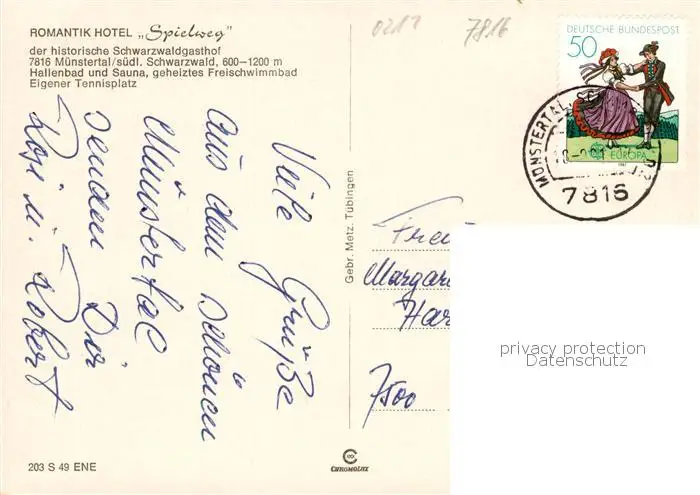 ROMANTIK HOTEL „Spielweg"
der historische Schwarzwaldgasthof
7816 Münstertal/südl. Schwarzwald, 600–1200 m
Hallenbad und Sauna, geheiztes Freischwimmbad
Eigener Tennisplatz
0212
7816
DEUTSCHE BUNDESPOST
50
EUROPA
1981
MÜNSTERTAL
7816
Viele Grüße
aus dem schönen
Münstertal
senden Dir
Rosi u. Robert
Gebr. Metz, Tübingen
Margar
Har
7500
privacy protection
Datenschutz
203 S 49 ENE
CHROMOLUX